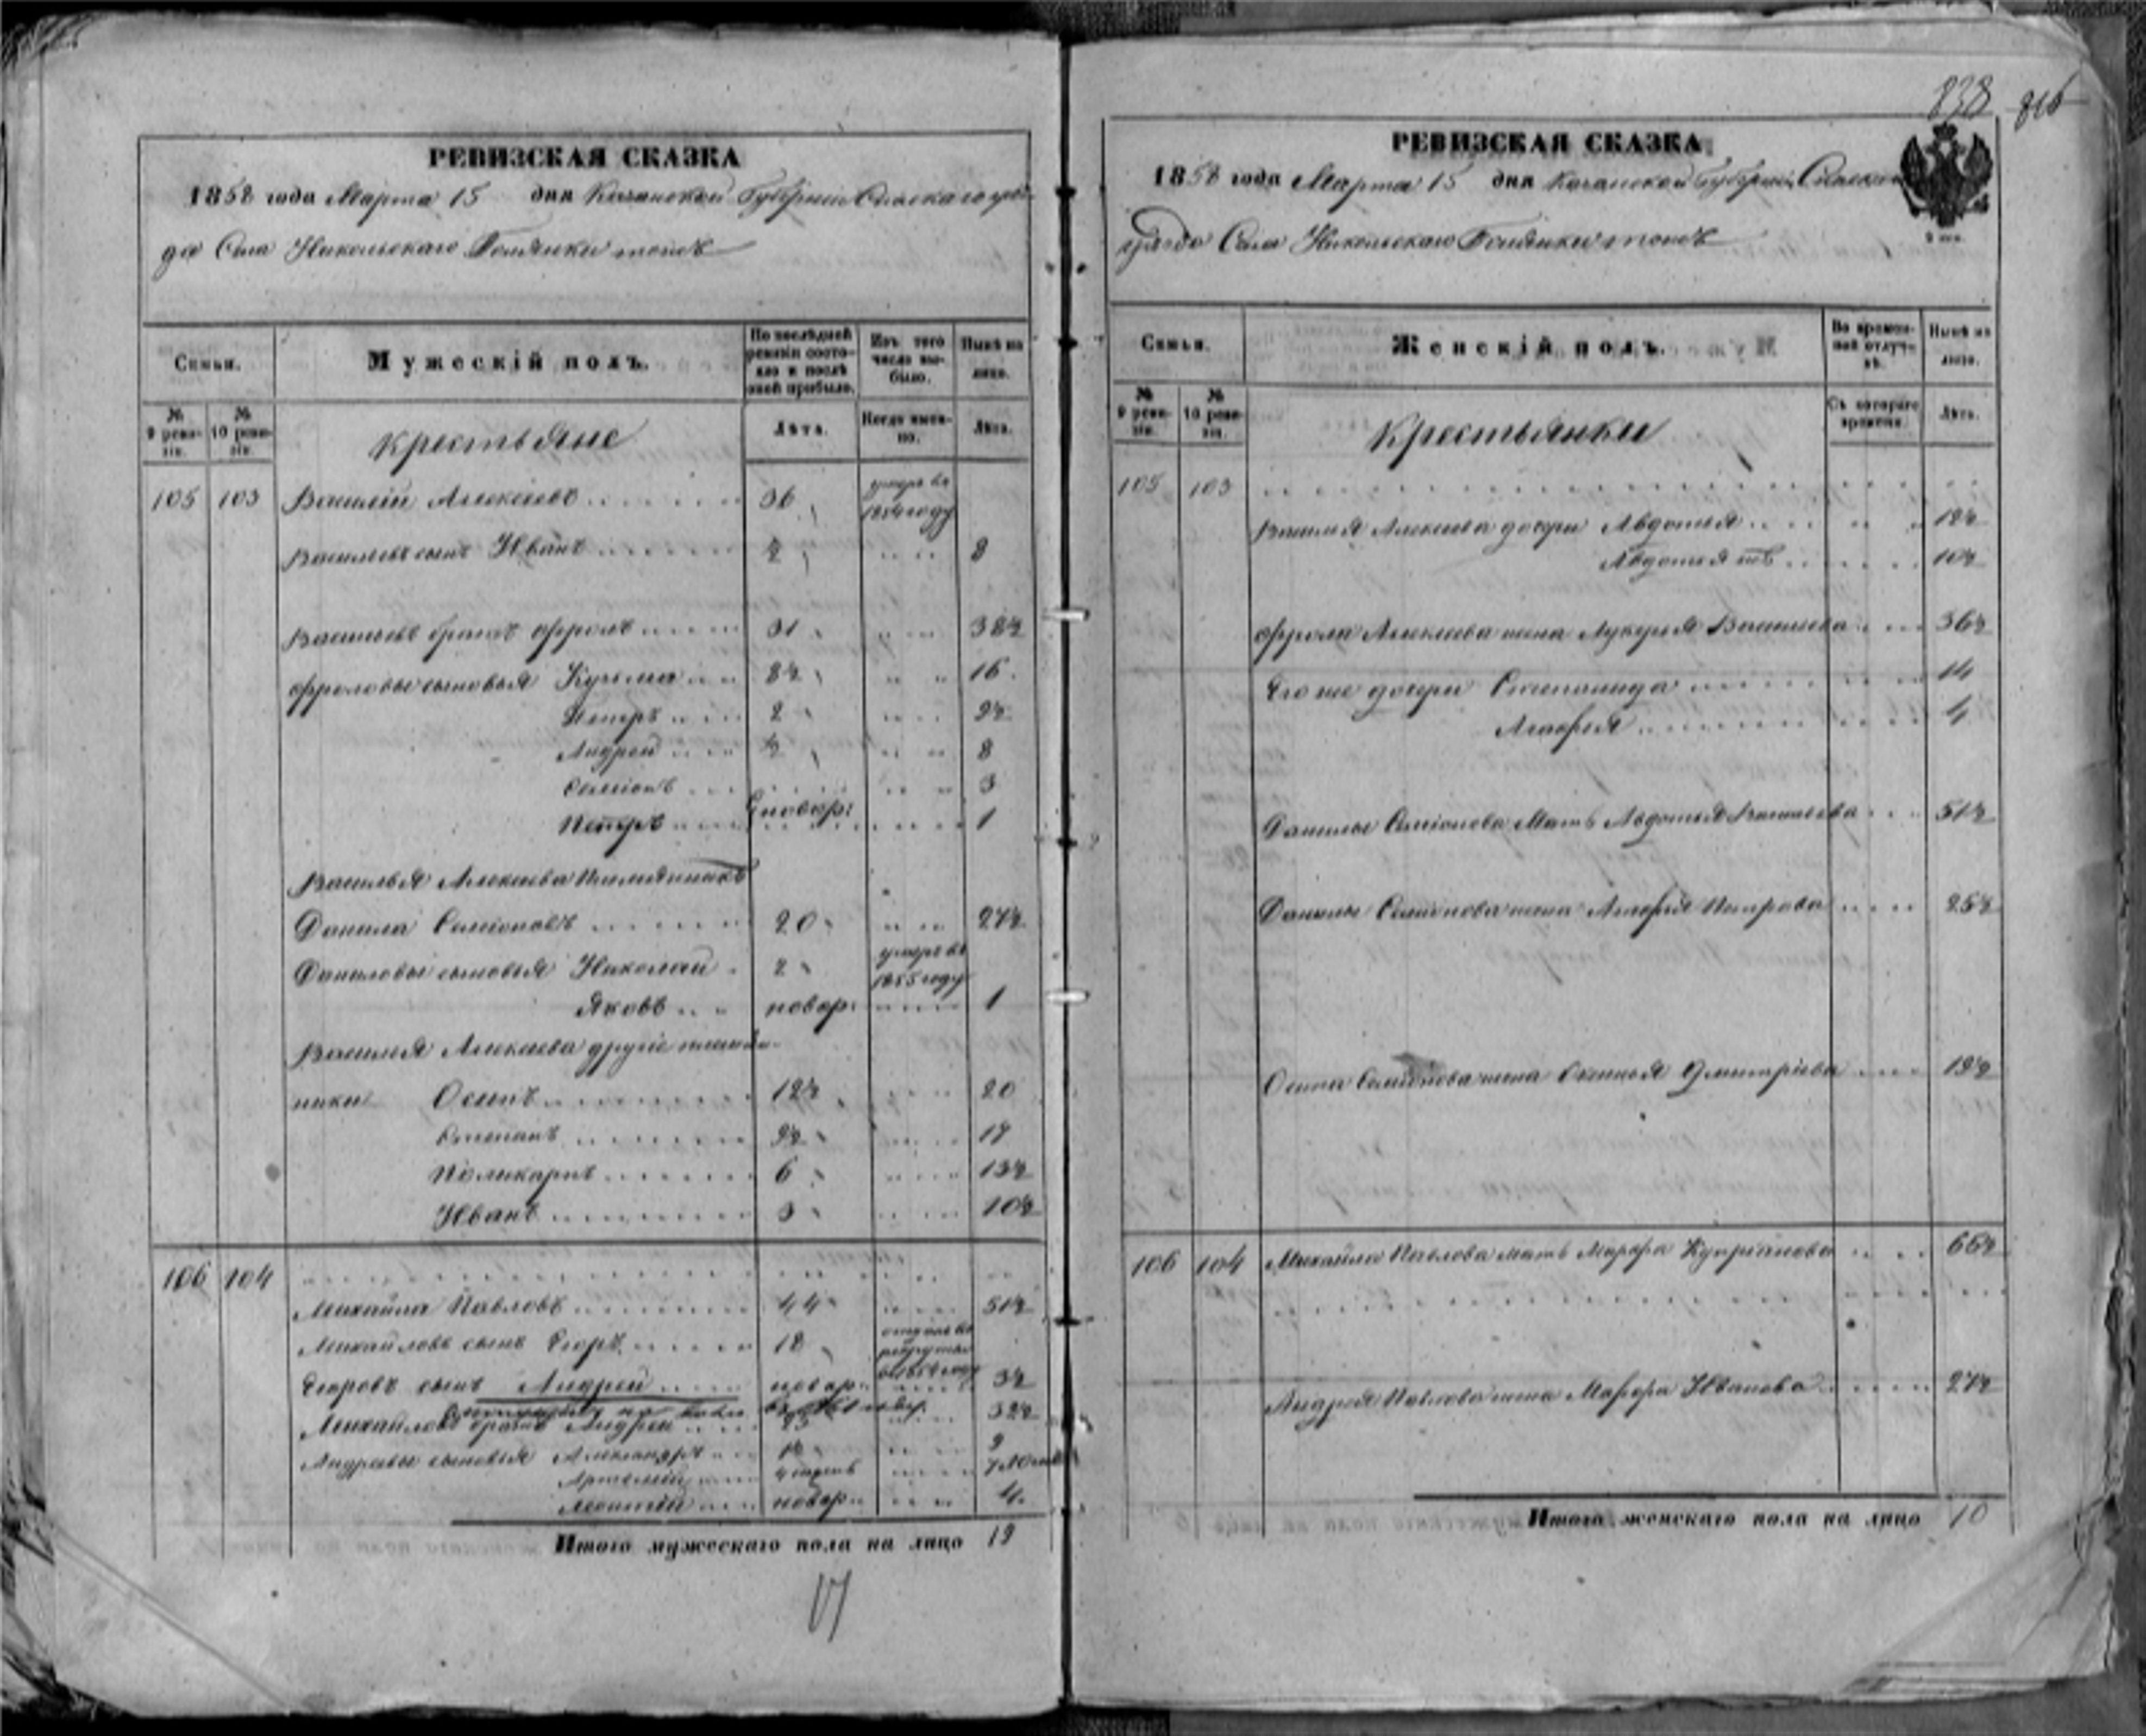 РЕВИЗСКАЯ СКАЗКА
1858 года Марта 15 дня Казанской Губернии Спаскаго уѣз-
да Села Никольскаго тожъ
Семьи.
Мужескій полъ.
По послѣдней ревизіи состояло и послѣ оной прибыло.
Изъ того числа выбыло.
Нынѣ на лицо.
№ 9 ревизіи.
№ 10 ревизіи.
крестьяне
Лѣта.
Когда именно.
Лѣта.
105 103 Василій Алексѣевъ 36 умеръ въ 1854 году
Васильевъ сынъ Иванъ ½ 8
Васильевъ братъ Фролъ 31 38½
Фроловы сыновья Кузьма 8½ 16
Петръ 2 9½
Андрей ½ 8
Семіонъ 3
Петръ новор: 1
Василья Алексѣева племянникъ
Данила Семіоновъ 20 27½
Даниловы сыновья Николай 2 умеръ въ 1855 году
Яковъ новор: 1
Василья Алексѣева другіе племян-
ники Осипъ 12½ 20
Степанъ 9½ 17
Поликарпъ 6 13½
Иванъ 3 10½
106 104
Михайла Павловъ 44 51½
Михайловъ сынъ Егоръ 18 отданъ въ рекруты
Егоровъ сынъ Андрей новор: 3½
Михайловъ братъ Андрей 25 32½
Андреевы сыновья Александръ 9
Артемій
новор: 4
Итого мужескаго пола на лицо 19
838
816
РЕВИЗСКАЯ СКАЗКА
1858 года Марта 15 дня Казанской Губерніи Спаскаго
уѣзда Села Никольскаго тожъ
Семьи.
Женскій полъ.
Во временной отлучкѣ.
Нынѣ на лицо.
№ 9 ревизіи.
№ 10 ревизіи.
Крестьянки
Съ котораго времени.
Лѣта.
105 103
Василья Алексѣева дочери Авдотья 12½
Авдотья 10½
Фрола Алексѣева жена Лукерья Васильева 36½
Его же дочери 14
Агафья 4
Данилы Семіонова Мать Авдотья 51½
Данилы Семіонова жена Агафья Петрова 25½
Осипа Семіонова жена Аксинья Дмитріева 19½
106 104 Михайла Павлова мать Марфа Купріанова 66½
Андрея Павлова жена Марфа Иванова 27½
Итого женскаго пола на лицо 10